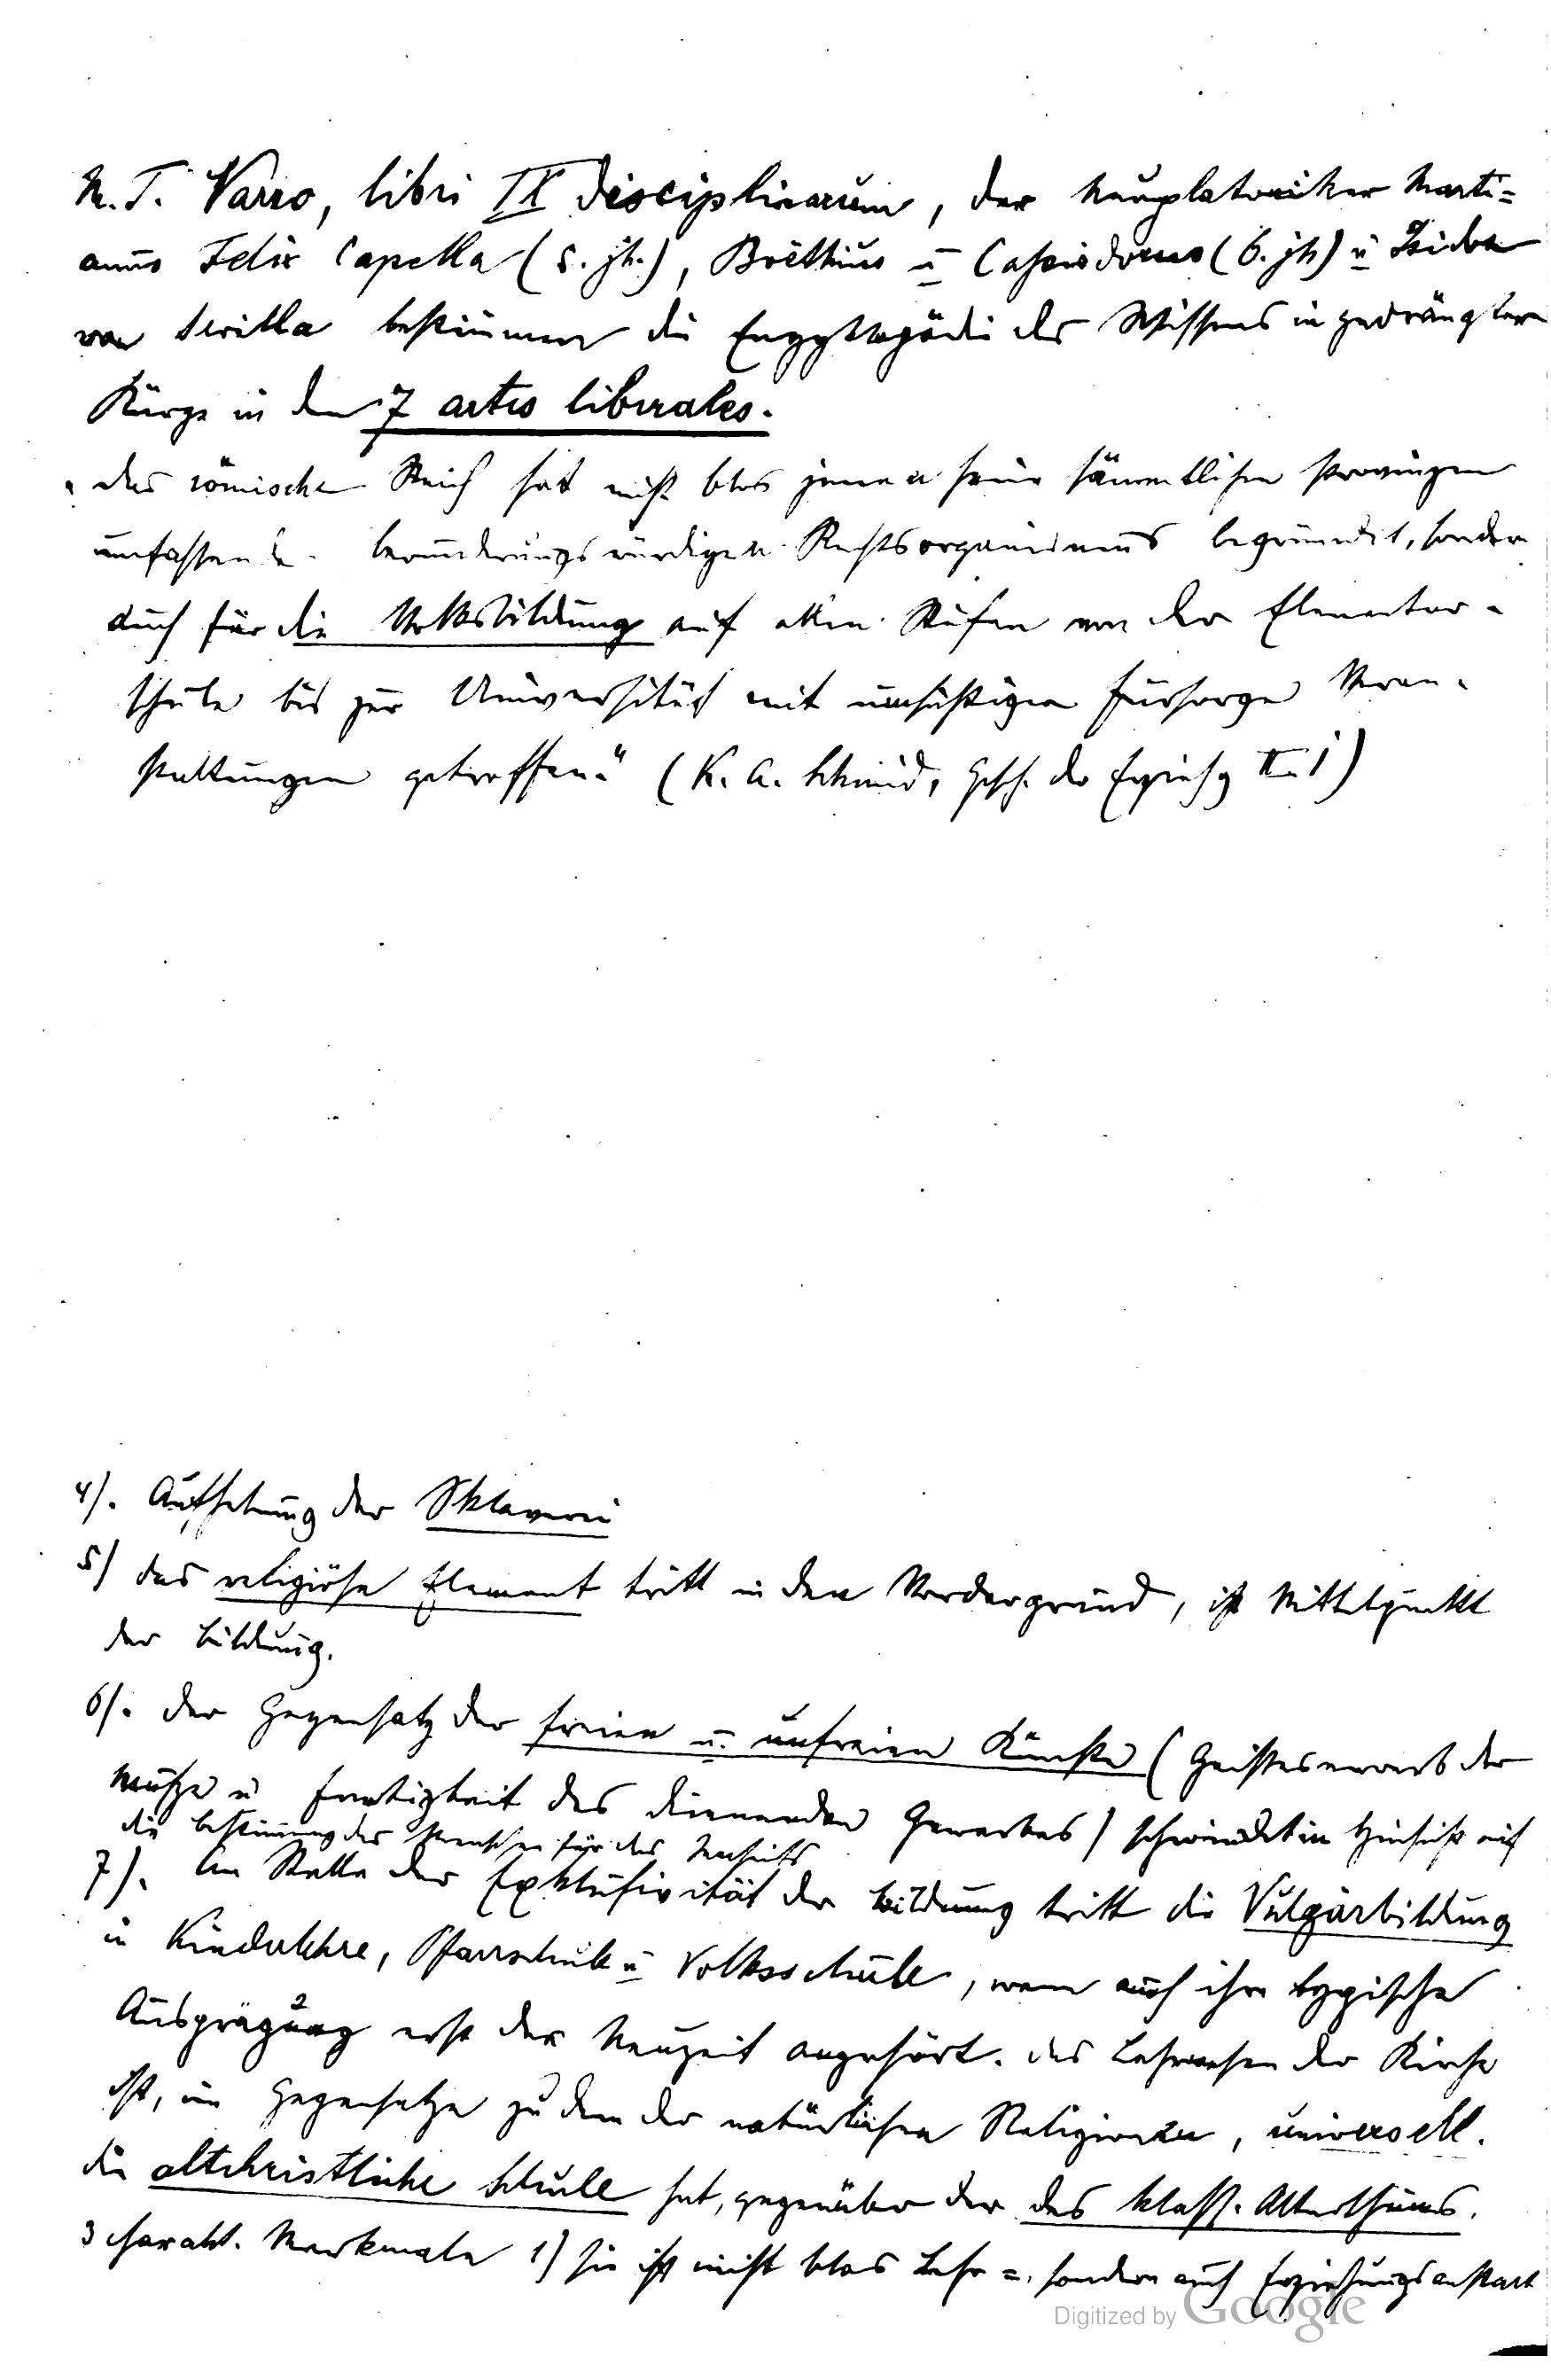 M. T. Varro, libri IX disciplinarum, der Neuplatoniker Marti=
anus Felix Capella (5. Jh.), Boëthius u Cassiodorus (6. Jh) u Isidor
von Sevilla bestimmen die Enzyklopädie des Wissens in gedrängter
Kürze in den 7 artes liberales.
"das römische Reich hat nicht blos jenen seine sämmtlichen Provinzen
umfassenden bewunderungswürdigen Rechtsorganismus begründet, sondern
auch für die Volksbildung auf allen Stufen von der Elementar-
schule bis zur Universität mit umsichtiger Fürsorge Veran-
staltungen getroffen." (K. A. Schmid, Gesch. der Erziehg II. 1)
4). Aufhebung der Sklaverei
5) das religiöse Element tritt in den Vordergrund, ist Mittelpunkt
der Bildung.
6). der Gegensatz der freien u. unfreien Künste (Geisteserwerb der
Muße u Fertigkeit des dienenden Gewerbes) schwindet in Hinsicht auf
die Bestimmung des Menschen für das Jenseits
7). An Stelle der Exklusivität der Bildung tritt die Vulgärbildung
in Kinderlehre, Pfarrschule u Volksschule, wenn auch ihre typische
Ausprägung erst der Neuzeit angehört. das Lehrwesen der Kirche
ist, im Gegensatze zu dem der natürlichen Religionen, universell.
die altchristliche Schule hat, gegenüber der des klass. Alterthums,
3 charakt. Merkmale 1) sie ist nicht blos Lehr=, sondern auch Erziehungsanstalt
Digitized by Google